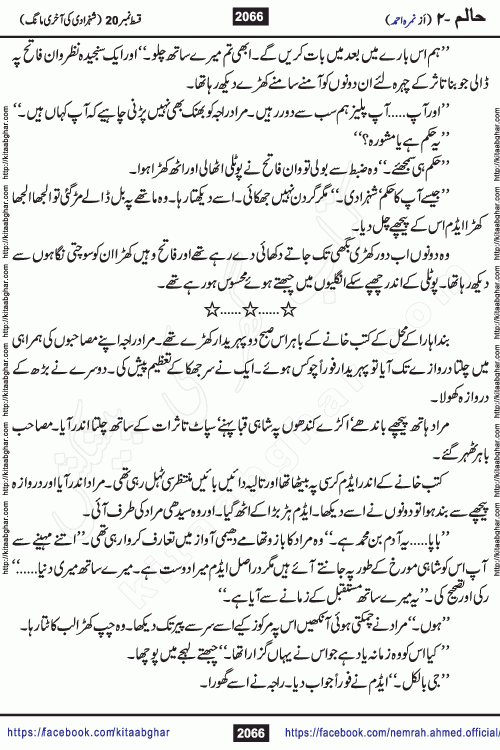 حالم -۲ (از نمرہ احمد)
2066
قسط نمبر 20 (شہزادی کی آخری مانگ)
’’ہم اس بارے میں بعد میں بات کریں گے۔ ابھی تم میرے ساتھ چلو۔‘‘ اور ایک سنجیدہ نظر وان فاتح پہ
ڈالی جو بنا تاثر کے چہرہ لئے ان دونوں کو آمنے سامنے کھڑے دیکھ رہا تھا۔
’’اور آپ.....آپ پلیز ہم سب سے دور رہیں۔ مراد راجہ کو بھنک بھی نہیں پڑنی چاہیے کہ آپ کہاں ہیں۔‘‘
’’یہ حکم ہے یا مشورہ؟‘‘
’’حکم ہی سمجھئے۔‘‘ وہ ضبط سے بولی تو وان فاتح نے پوٹلی اٹھالی اور اٹھ کھڑا ہوا۔
’’جیسے آپ کا حکم‘ شہزادی۔‘‘ مگر گردن نہیں جھکائی۔ اسے دیکھتا رہا۔ وہ ماتھے پہ بل ڈالے مڑ گئی تو الجھا الجھا
کھڑا ایڈم اس کے پیچھے چل دیا۔
وہ دونوں اب دور کھڑی بگھی تک جاتے دکھائی دے رہے تھے اور فاتح وہیں کھڑا ان کو سوچتی نگاہوں سے
دیکھ رہا تھا۔ پوٹلی کے اندر چھپے سکے انگلیوں میں چبھتے ہوئے محسوس ہو رہے تھے۔
☆......☆......☆
بنداہارا کے محل کے کتب خانے کے باہر اس صبح دو پہریدار کھڑے تھے۔ مراد راجہ اپنے مصاحبوں کی ہمراہی
میں چلتا دروازے تک آیا تو پہریدار فوراً چوکس ہوئے۔ ایک نے سر جھکا کے تعظیم پیش کی۔ دوسرے نے بڑھ کے
دروازہ کھولا۔
مراد ہاتھ پیچھے باندھے‘ اکڑے کندھوں پہ شاہی قبا پہنے‘ سپاٹ تاثرات کے ساتھ چلتا اندر آیا۔ مصاحب
باہر ٹھہر گئے۔
کتب خانے کے اندر ایڈم کرسی پہ بیٹھا تھا اور تالیہ دائیں بائیں منتظر سی ٹہل رہی تھی۔ مراد اندر آیا اور دروازہ
پیچھے سے بند ہوا تو دونوں نے اسے دیکھا۔ ایڈم ہڑبڑا کے اٹھ گیا۔ اور وہ سیدھی مراد کی طرف آئی۔
’’باپا.....یہ آدم بن محمد ہے۔‘‘ وہ مراد کا بازو تھامے دھیمی آواز میں تعارف کروا رہی تھی۔ ’’اتنے مہینے سے
آپ اس کو شاہی مورخ کے طور پہ جانتے آئے ہیں مگر دراصل ایڈم میرا دوست ہے۔ میرے ساتھ میری دنیا......‘‘
رکی اور تصحیح کی۔ ’’یہ میرے ساتھ مستقبل کے زمانے سے آیا ہے۔‘‘
’’ہوں۔‘‘ مراد نے چمکتی ہوئی آنکھیں اس پہ مرکوز کیے اسے سر سے پیر تک دیکھا۔ وہ چپ کھڑا لب کاٹتا رہا۔
’’کیا اس کو وہ زمانہ یاد ہے جو اس نے یہاں گزارا تھا۔‘‘ چبھتے لہجے میں پوچھا۔
’’جی بالکل۔‘‘ ایڈم نے فوراً جواب دیا۔ راجہ نے اسے گھورا۔
https://facebook.com/kitaabghar
2066
https://facebook.com/nemrah.ahmed.official/
http://kitaabghar.com http://kitaabghar.com http://kitaabghar.com http://kitaabghar.com